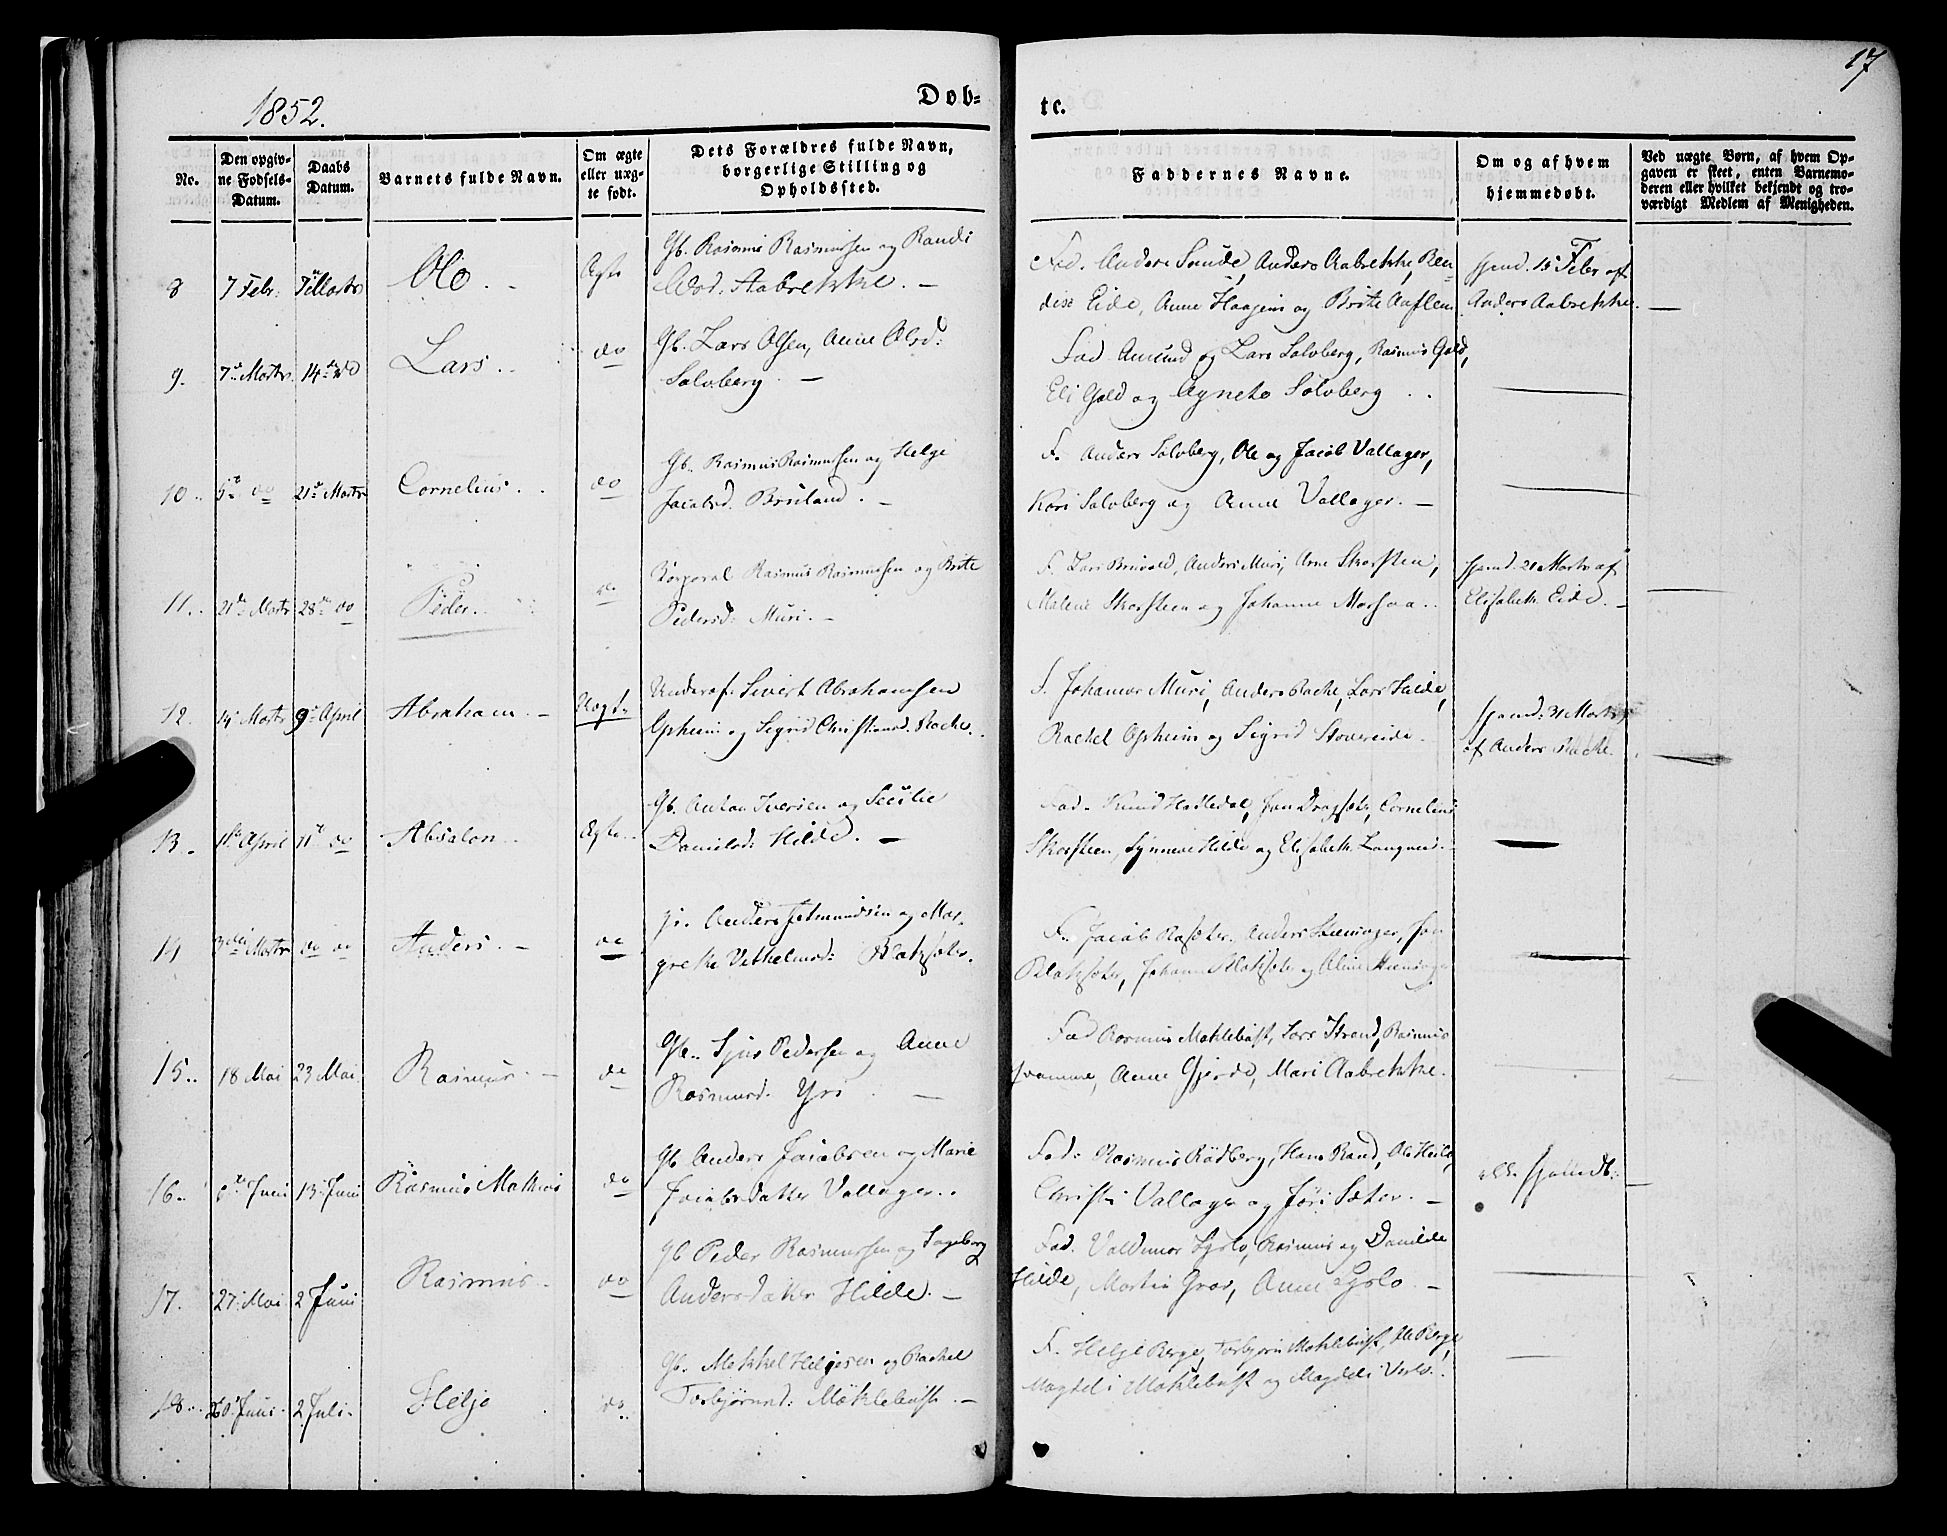 17
1852.
Dob=
te.
No.
Den opgiv-
ne Fødsels-
Datum.
Daabs
Datum.
Barnets fulde Navn.
Om ægte
eller uæg-
te født.
Dets Forældres fulde Navn,
borgerlige Stilling og
Opholdssted.
Faddernes Navne.
Om og af hvem
hjemmedøbt.
Ved uægte Børn, af hvem Op-
gaven er skeet, enten Barnemo-
deren eller hvilket bekjendt og tro-
værdigt Medlem af Menigheden.
8 7 Febr. Ole Ægte
Gb. Rasmus Rasmussen og Randi
Olsd. Aabrekke. —
Fad. Anders Sunde, Anders Aabrekke, Ren-
disе Eide, Anne Haagens og Brite Auflem
hjemd. 15 Febr af
Anders Aabrekke.
9. 7de Marts. 14de do Lars. do
Gb. Lars Olsen, Anne Olsd:
Solvberg. —
Fad. Amund og Lars Solvberg, Rasmus Gald,
Eli Gald og Agnethe Solvberg.
10. do 21de Marts Cornelius. do
Gb. Rasmus Rasmussen og Helge
Jacobsd. Bruland. —
F. Anders Solvberg, Ole og Jacob Vallager,
Kari Solvberg og Anne Vallager. —
11. 21de Marts 28de do Peder. do
Korporal Rasmus Rasmussen og Brite
Pedersd: Muri. —
F. Lars Bruvold, Anders Muri, Arne Skarsteen,
Malene Skarsteen og Johanne
hjemd. 21 Marts af
Elisabeth Eide. —
12. 14 Marts 9de April Abraham. — Uægte
Underof. Sivert Abrahamsen
Opheim og Sigrid Christiansd. Rache.
F. Johannes Muri, Anders Rache, Lars Hilde,
Rachel Opheim og Sigrid
hjemd: 31 Marts
af Anders Rache.
13. April 11te do Absalon. Ægte
Gb. Anton Iversen og Secilie
Danielsd: Hilde. —
Fad. Knud Holledal, Jon Dragset, Cornelius
Skarsteen, Synneve Hilde og Elisabeth
14 Marts do do Anders. — do
Anders Jetmundsen og Mar-
grethe Blakseter.
F. Jacob Anders Jon
Blakseter, Johanne Blakseter og Oline
15. 18 Mai 23 Mai Rasmus. — do
Gb. Sjur Pedersen og Anne
Rasmusd. Yri. —
Fad Rasmus Meklebust, Lars Strand, Rasmus
Anne Gjerde, Mari Aabrekke.
16. 6te Juni 13 Juni Rasmus Mathias do
Gb Anders Jacobsen og Marie
Jacobsdatter Vallager.
Fad: Rasmus Rødberg, Hans Rand, Ole Heile,
Christi Vallager og Jøri Sæter. —
17. 27 Mai 2 Juni Rasmus. do
Gb Peder Rasmussen og Ingeborg
Andersdatter Hilde. —
Fad. Valdemar Rasmus og Daniel
Hilde, Marthe Grov, Anne
18. Juni. 2 Juli. Helje do
Gb. Mekkel Heljesen og Rachel
Torbjørnsd: Meklebust. —
F. Helje Berge, Torbjørn Meklebust, Ole Berge,
Magdeli Meklebust og Magdeli